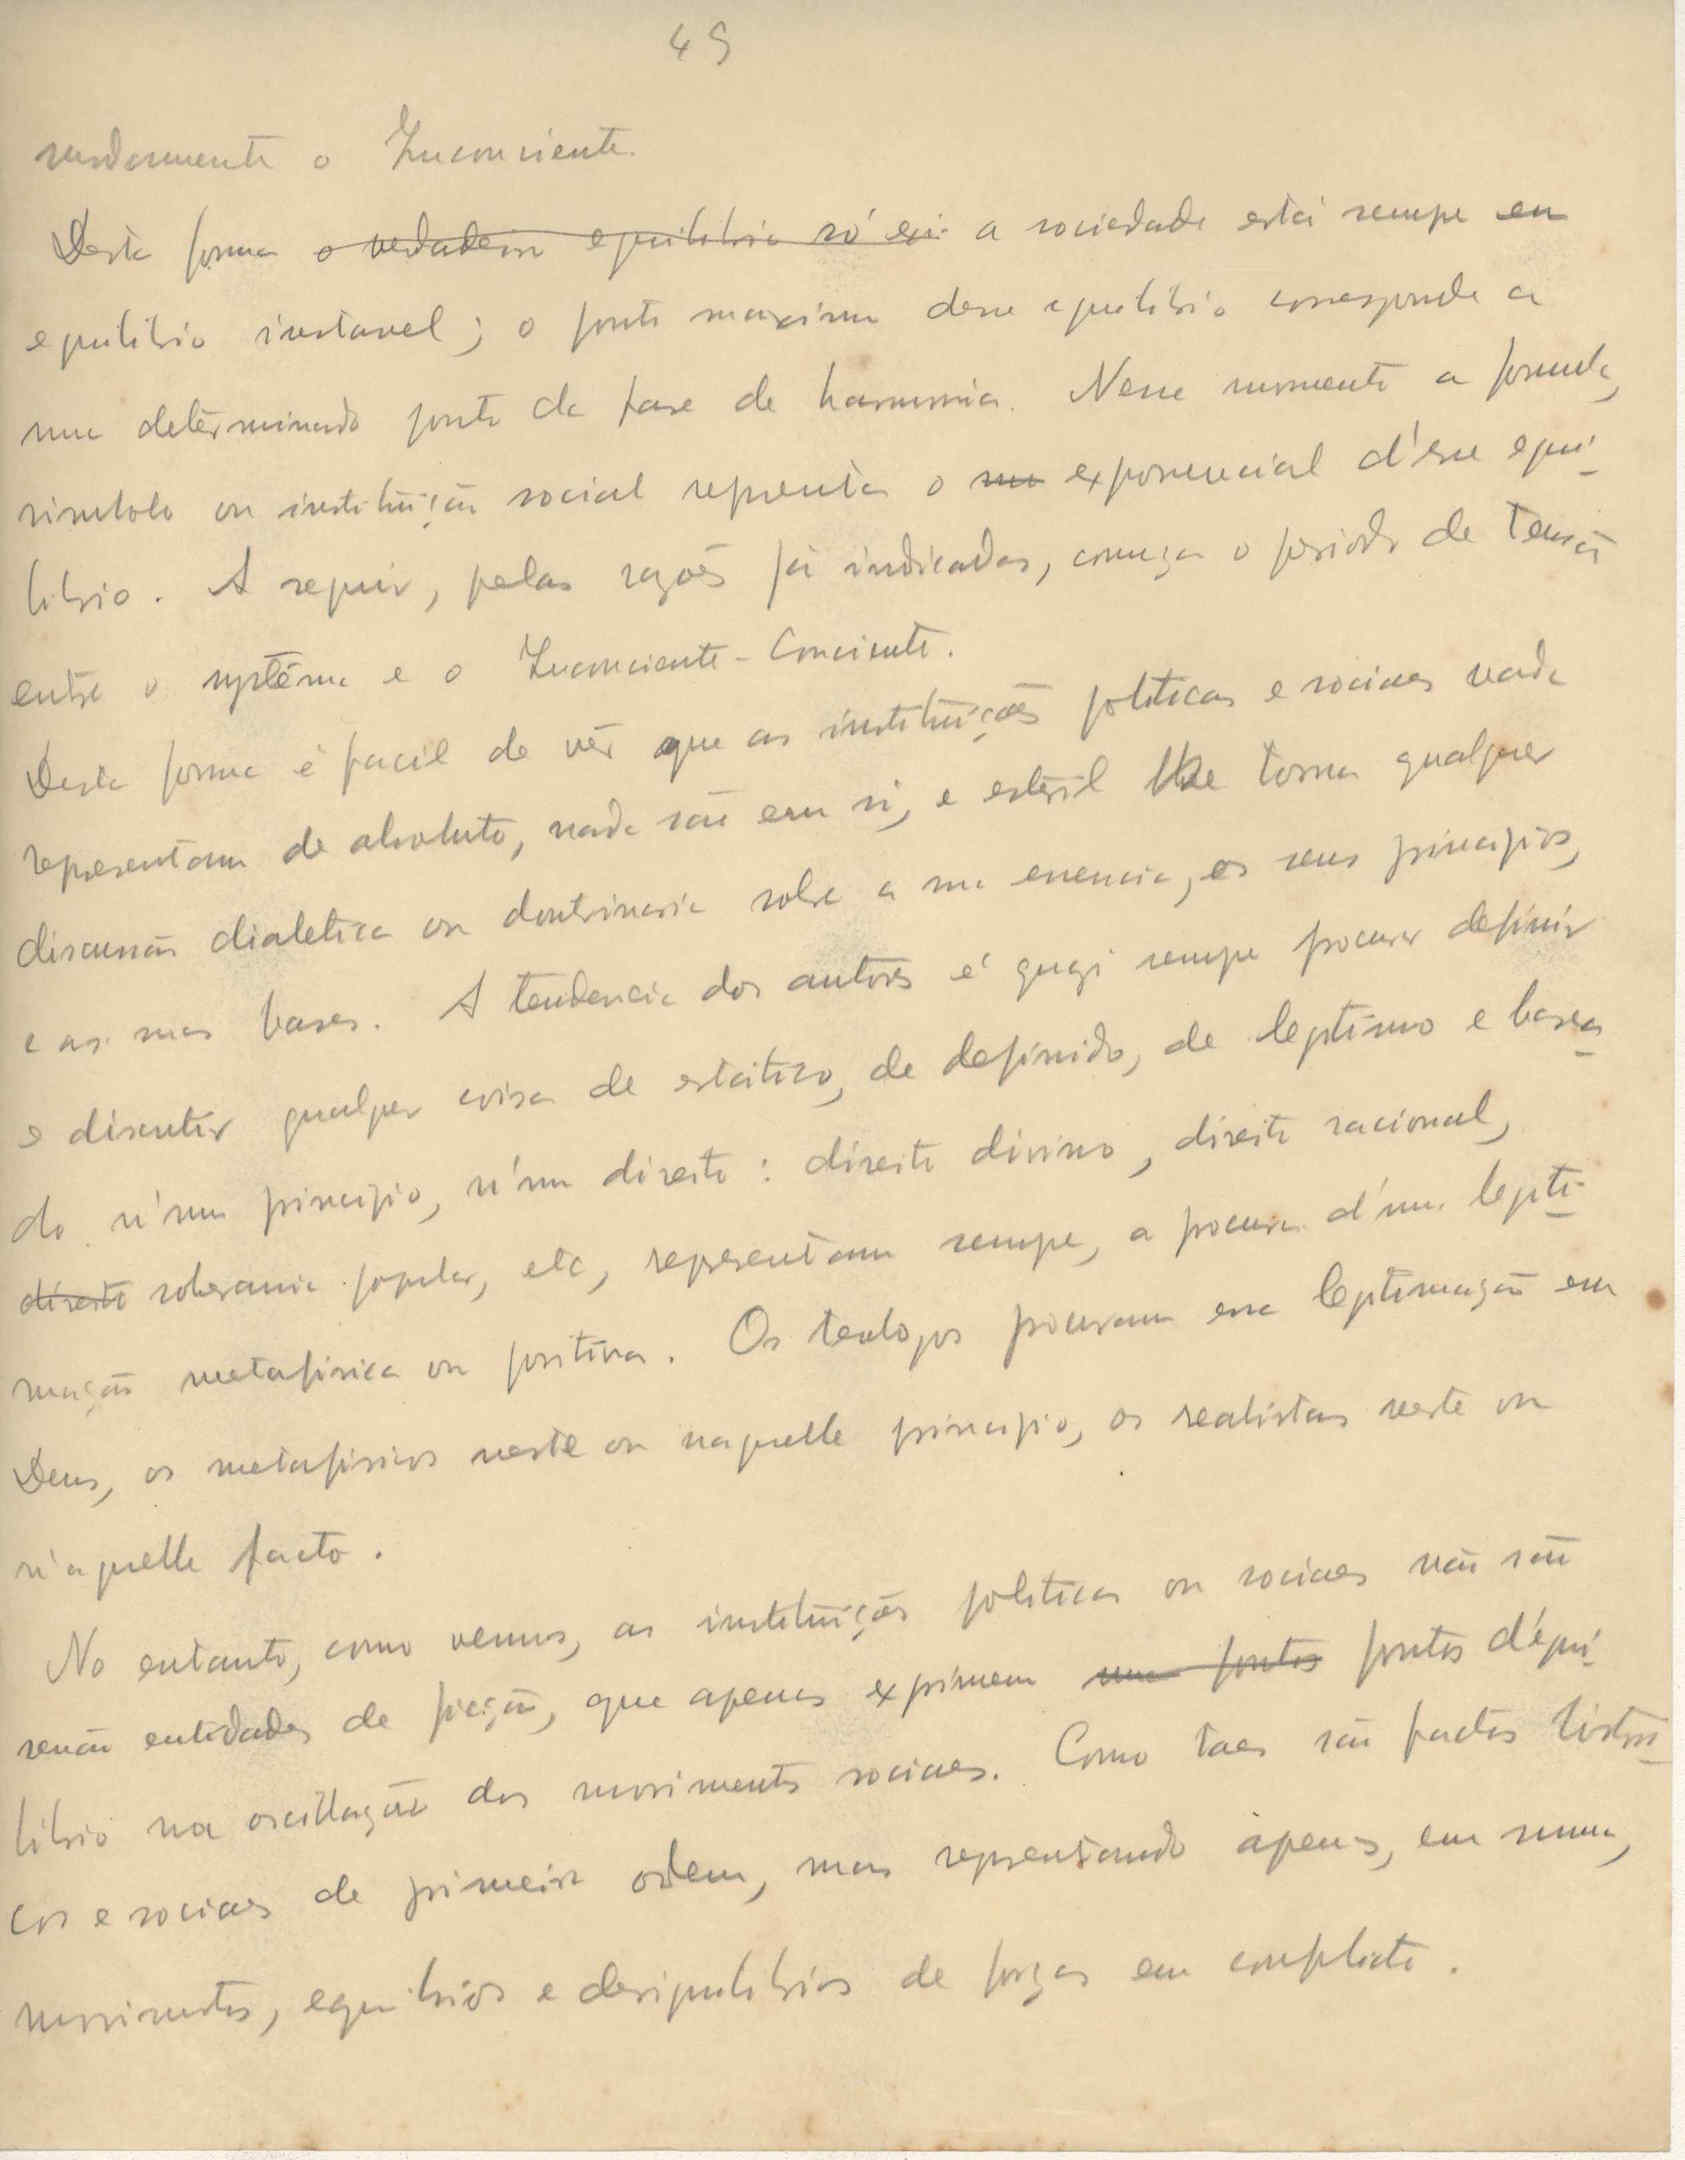 49
o Inconciente.
Desta forma o verdadeiro equilibrio só exi- a sociedade está sempre em
equilibrio instavel; o ponto maximo desse equilibrio corresponde a
um determinado ponto da fase de harmonia. Nesse momento a formula,
simbolo ou instituição social representa o exponencial d'esse equi-
librio. A seguir, pelas razões já indicadas, começa o periodo de tensão
entre o systêma e o Inconciente-Conciente.
Desta forma é facil de vêr que as instituições politicas e sociaes nada
representam de absoluto, nada são em si, e esteril se torna qualquer
discussão dialetica ou doutrinaria sobre a sua essencia, os seus principios,
e as suas bases. A tendencia dos autores é quasi sempre procurar definir
e discutir qualquer coisa de estático, de definido, de legitimo e basea-
do n'um principio, n'um direito: direito divino, direito racional,
direito soberania popular, etc, representam sempre, a procura d'uma legiti-
mação metafisica ou positiva. Os teologos procuram essa legitimação em
Deus, os metafisicos neste ou naquelle principio, os realistas neste ou
n'aquelle facto.
No entanto, como vemos, as instituições politicas ou sociaes não são
senão entidades de ficção, que apenas exprimem uns pontos pontos d'equi-
librio na oscillação dos movimentos sociaes. Como taes são factos histori-
cos e sociaes de primeira ordem, mas representando apenas, em suma,
movimentos, equilibrios e desiquilibrios de forças em conflicto.